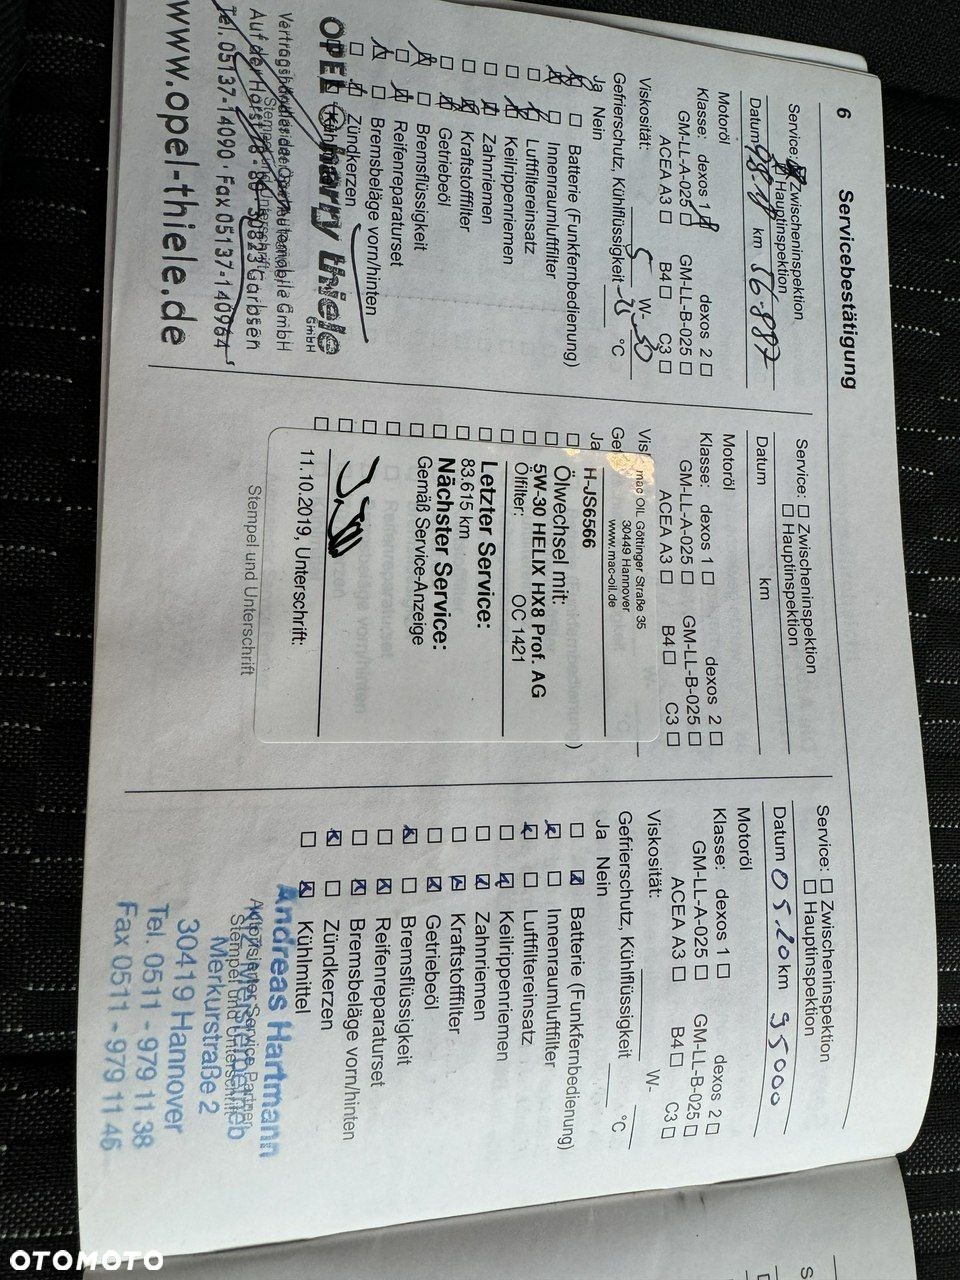 6
Servicebestätigung
Service: Zwischeninspektion
Hauptinspektion
Datum 08.18 km 56.887
Motoröl
Klasse: dexos 1 dexos 2
GM-LL-A-025 GM-LL-B-025
ACEA A3 B4 C3
Viskosität: 5 W- 30
Gefrierschutz, Kühlflüssigkeit °C
Ja Nein
Batterie (Funkfernbedienung)
Innenraumluftfilter
Luftfiltereinsatz
Keilrippenriemen
Zahnriemen
Kraftstofffilter
Getriebeöl
Bremsflüssigkeit
Reifenreparaturset
Bremsbeläge vorn/hinten
Zündkerzen
OPEL harry thiele
GmbH
Vertragshändler der Opel Automobile GmbH
Auf der Horst 30823 Garbsen
Tel. 05137-14090 Fax 05137-140964
www.opel-thiele.de
Service: Zwischeninspektion
Hauptinspektion
Datum km
Motoröl
Klasse: dexos 1 dexos 2
GM-LL-A-025 GM-LL-B-025
ACEA A3 B4 C3
mac OIL Göttinger Straße 35
30449 Hannover
www.mac-oil.de
H-JS6566
Ölwechsel mit:
5W-30 HELIX HX8 Prof. AG
Ölfilter: OC 1421
Letzter Service:
83.615 km
Nächster Service:
Gemäß Service-Anzeige
11.10.2019, Unterschrift:
Stempel und Unterschrift
Service: Zwischeninspektion
Hauptinspektion
Datum 05.20 km 95000
Motoröl
Klasse: dexos 1 dexos 2
GM-LL-A-025 GM-LL-B-025
ACEA A3 B4 C3
Viskosität: W-
Gefrierschutz, Kühlflüssigkeit °C
Ja Nein
Batterie (Funkfernbedienung)
Innenraumluftfilter
Luftfiltereinsatz
Keilrippenriemen
Zahnriemen
Kraftstofffilter
Getriebeöl
Bremsflüssigkeit
Reifenreparaturset
Bremsbeläge vorn/hinten
Zündkerzen
Kühlmittel
Andreas Hartmann
Autorisierter Service Partner
Stempel und Unterschrift
Merkurstraße 2
30419 Hannover
Tel. 0511 - 979 11 38
Fax 0511 - 979 11 46
OTOMOTO